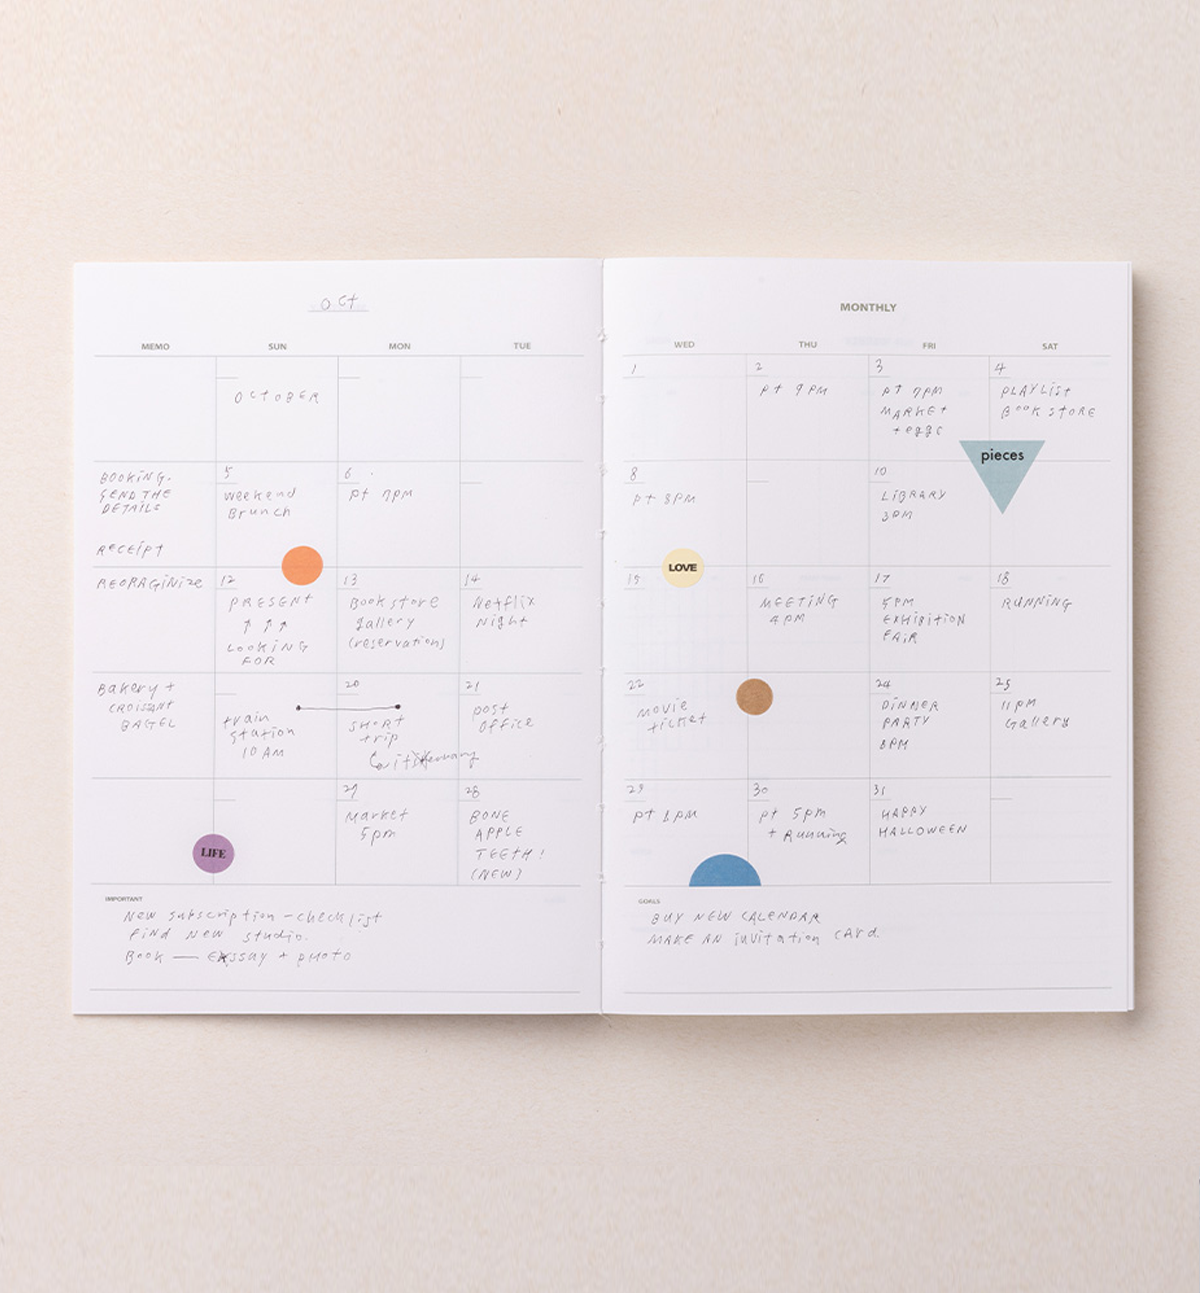 oct
MONTHLY
MEMO SUN MON TUE WED THU FRI SAT
OCTOBER
1
2
pt 9 PM
3
pt 7PM
MARKET
+ eggs
4
PLAYLIST
BOOK STORE
pieces
BOOKING.
SEND THE
DETAILS
Receipt
5
weekend
Brunch
6
pt 7PM
8
pt 8PM
10
LIBRARY
3PM
REORAGINIZE
12
PRESENT
↑ ↑ ↑
LOOKING
FOR
13
Book store
gallery
(reservation)
14
Netflix
Night
LOVE
15
16
MEETING
4PM
17
5PM
EXHIBITION
FAIR
18
RUNNING
Bakery +
CROISSANT
BAGEL
train
station
10 AM
20
SHORT
trip
21
post
office
22
movie
ticket
24
DINNER
PARTY
8PM
25
11 PM
Gallery
LIFE
27
Market
5pm
28
BONE
APPLE
TEETH!
(NEW)
29
pt 8PM
30
pt 5pm
+ Running
31
HAPPY
HALLOWEEN
IMPORTANT
New subscription - checklist
Find New studio.
Book — Essay + photo
GOALS
BUY NEW CALENDAR
MAKE AN invitation CARD.